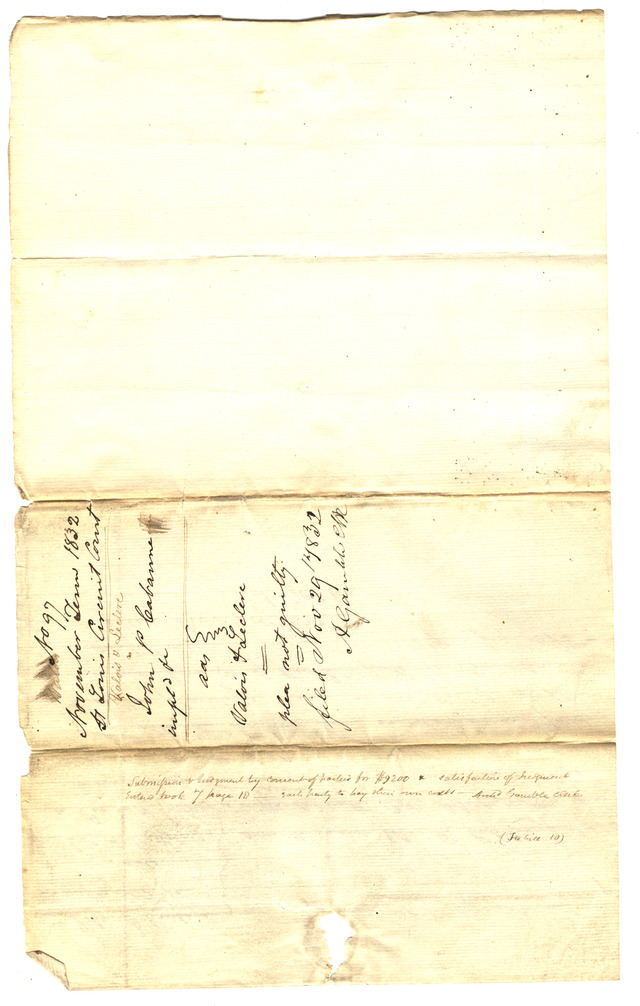 No 97
November Term 1832
St Louis Circuit Court
Valois v Leclerc
John P Cabanne
impl'd &c
ads
Valois & Leclerc
plea not guilty
filed Nov 29th 1832
A Gamble Clk
Submission & Judgment by consent of parties for $9200 & satisfaction of Judgment
Entered book 7 page 10 — each party to pay their own costs — Gamble Clerk